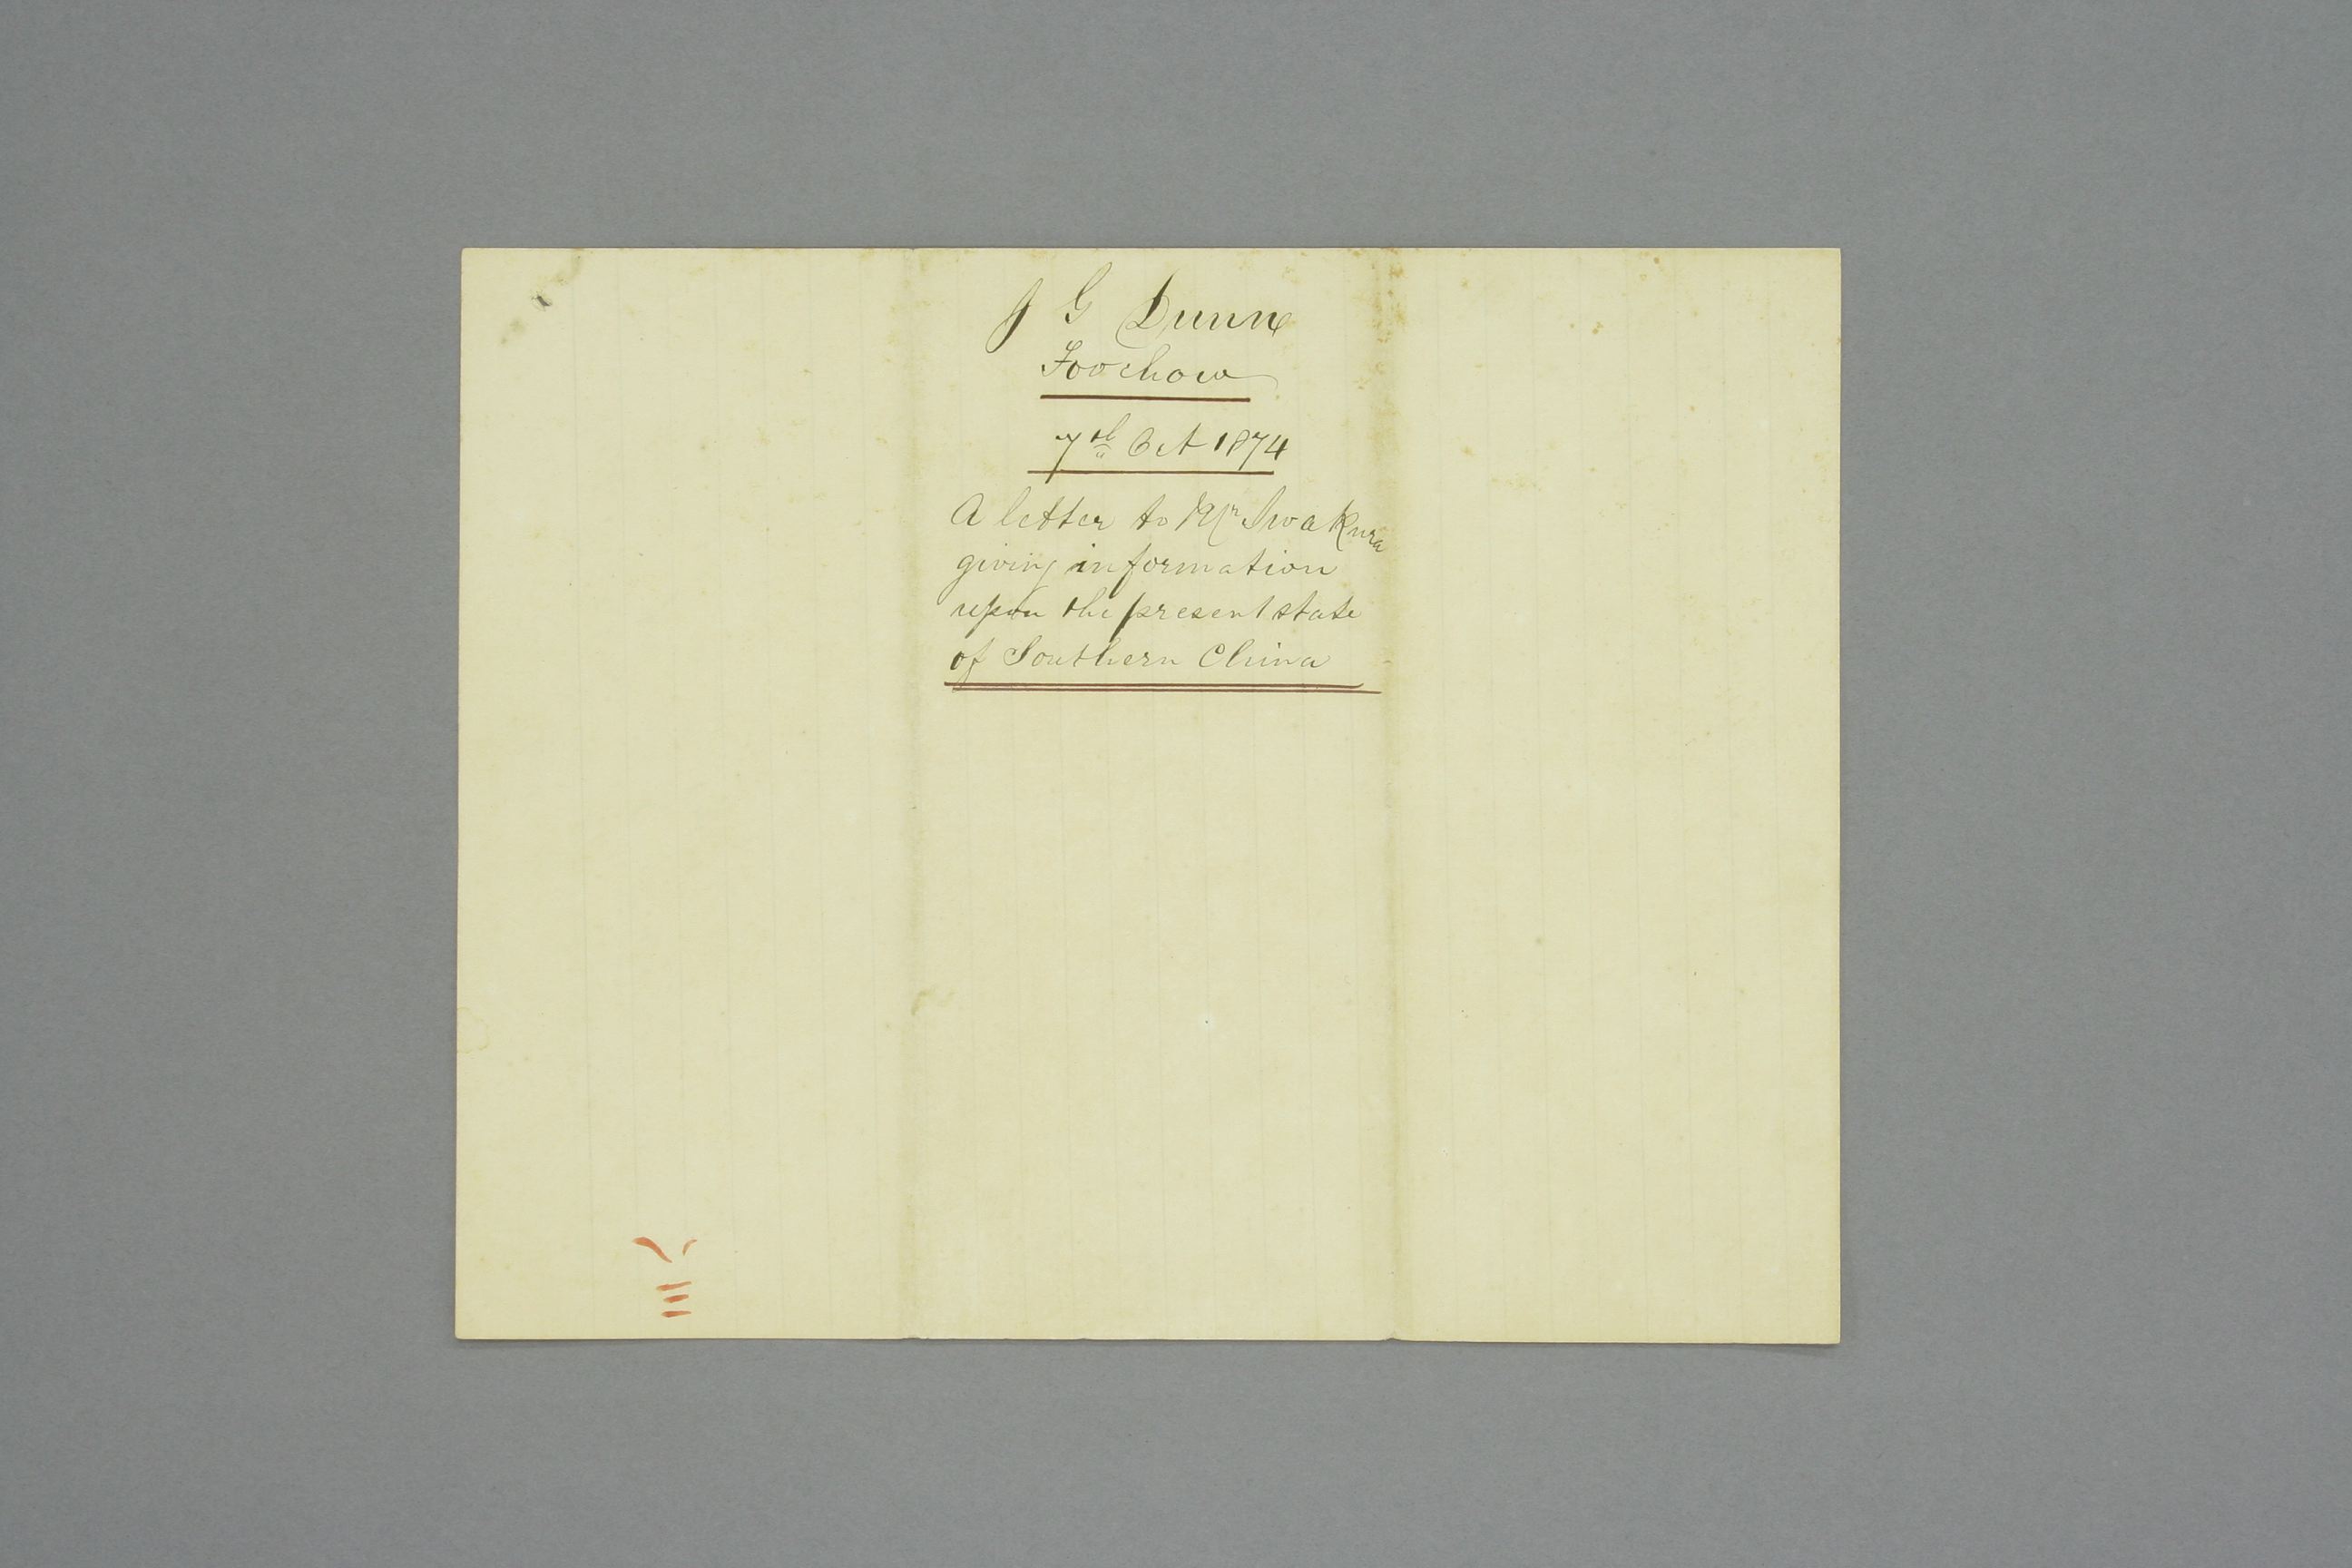 J G Dunn
Foochow
7th Oct 1874
A letter to Mr Iwakura
giving information
upon the present state
of Southern China
八三